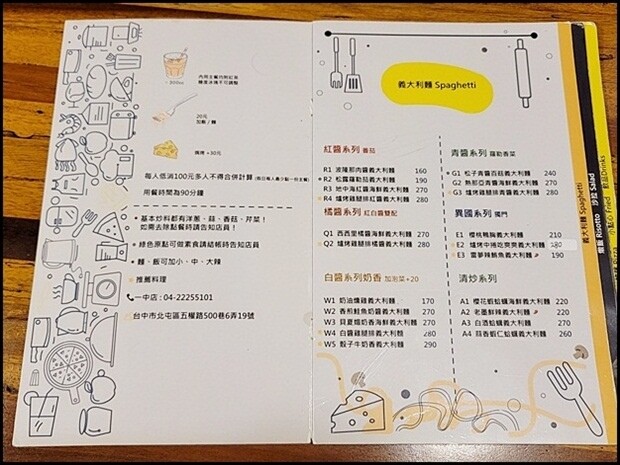 ~300cc
內用主餐均附紅茶
糖度冰塊不可調整
20元
加飯 / 麵
焗烤 +30元
每人低消100元多人不得合併計算
用餐時間為90分鐘
基本炒料都有洋蔥、蒜、香菇、芹菜！
如需去除點餐時請告知店員！
綠色原點可做素食請結帳時告知店員
麵、飯可加小、中、大辣
推薦料理
一中店：04-22255101
台中市北屯區五權路500巷6弄19號
義大利麵 Spaghetti
紅醬系列 蕃茄
R1 波隆那肉醬義大利麵 160
R2 松露蘿勒茄義大利麵 190
R3 地中海紅醬海鮮義大利麵 270
R4 爐烤雞腿排紅醬義大利麵 280
橘醬系列 紅白醬雙配
Q1 西西里橘醬海鮮義大利麵 270
Q2 爐烤雞腿排橘醬義大利麵 280
白醬系列奶香 加泡菜+20
W1 奶油燻雞義大利麵 170
W2 香煎鮭魚奶醬義大利麵 260
W3 貝夏媚奶香海鮮義大利麵 270
W4 白醬雞腿排義大利麵 280
W5 骰子牛奶香義大利麵 290
青醬系列 羅勒香菜
G1 松子青醬百菇義大利麵 240
G2 熱那亞青醬海鮮義大利麵 270
G3 爐烤雞腿排青醬義大利麵 280
異國系列 獨門
E1 櫻桃鴨胸義大利麵 210
E2 爐烤中捲吃爽爽義大利麵 180
E3 雷夢辣鮪魚義大利麵 190
清炒系列
A1 櫻花蝦蛤蠣海鮮義大利麵 220
A2 老墨鮮辣義大利麵 220
A3 白酒蛤蠣義大利麵 210
A4 蒜香蝦仁蛤蠣義大利麵 260
義大利麵 Spaghetti
燉飯 Risotto
沙拉 Salad
飲品Drinks